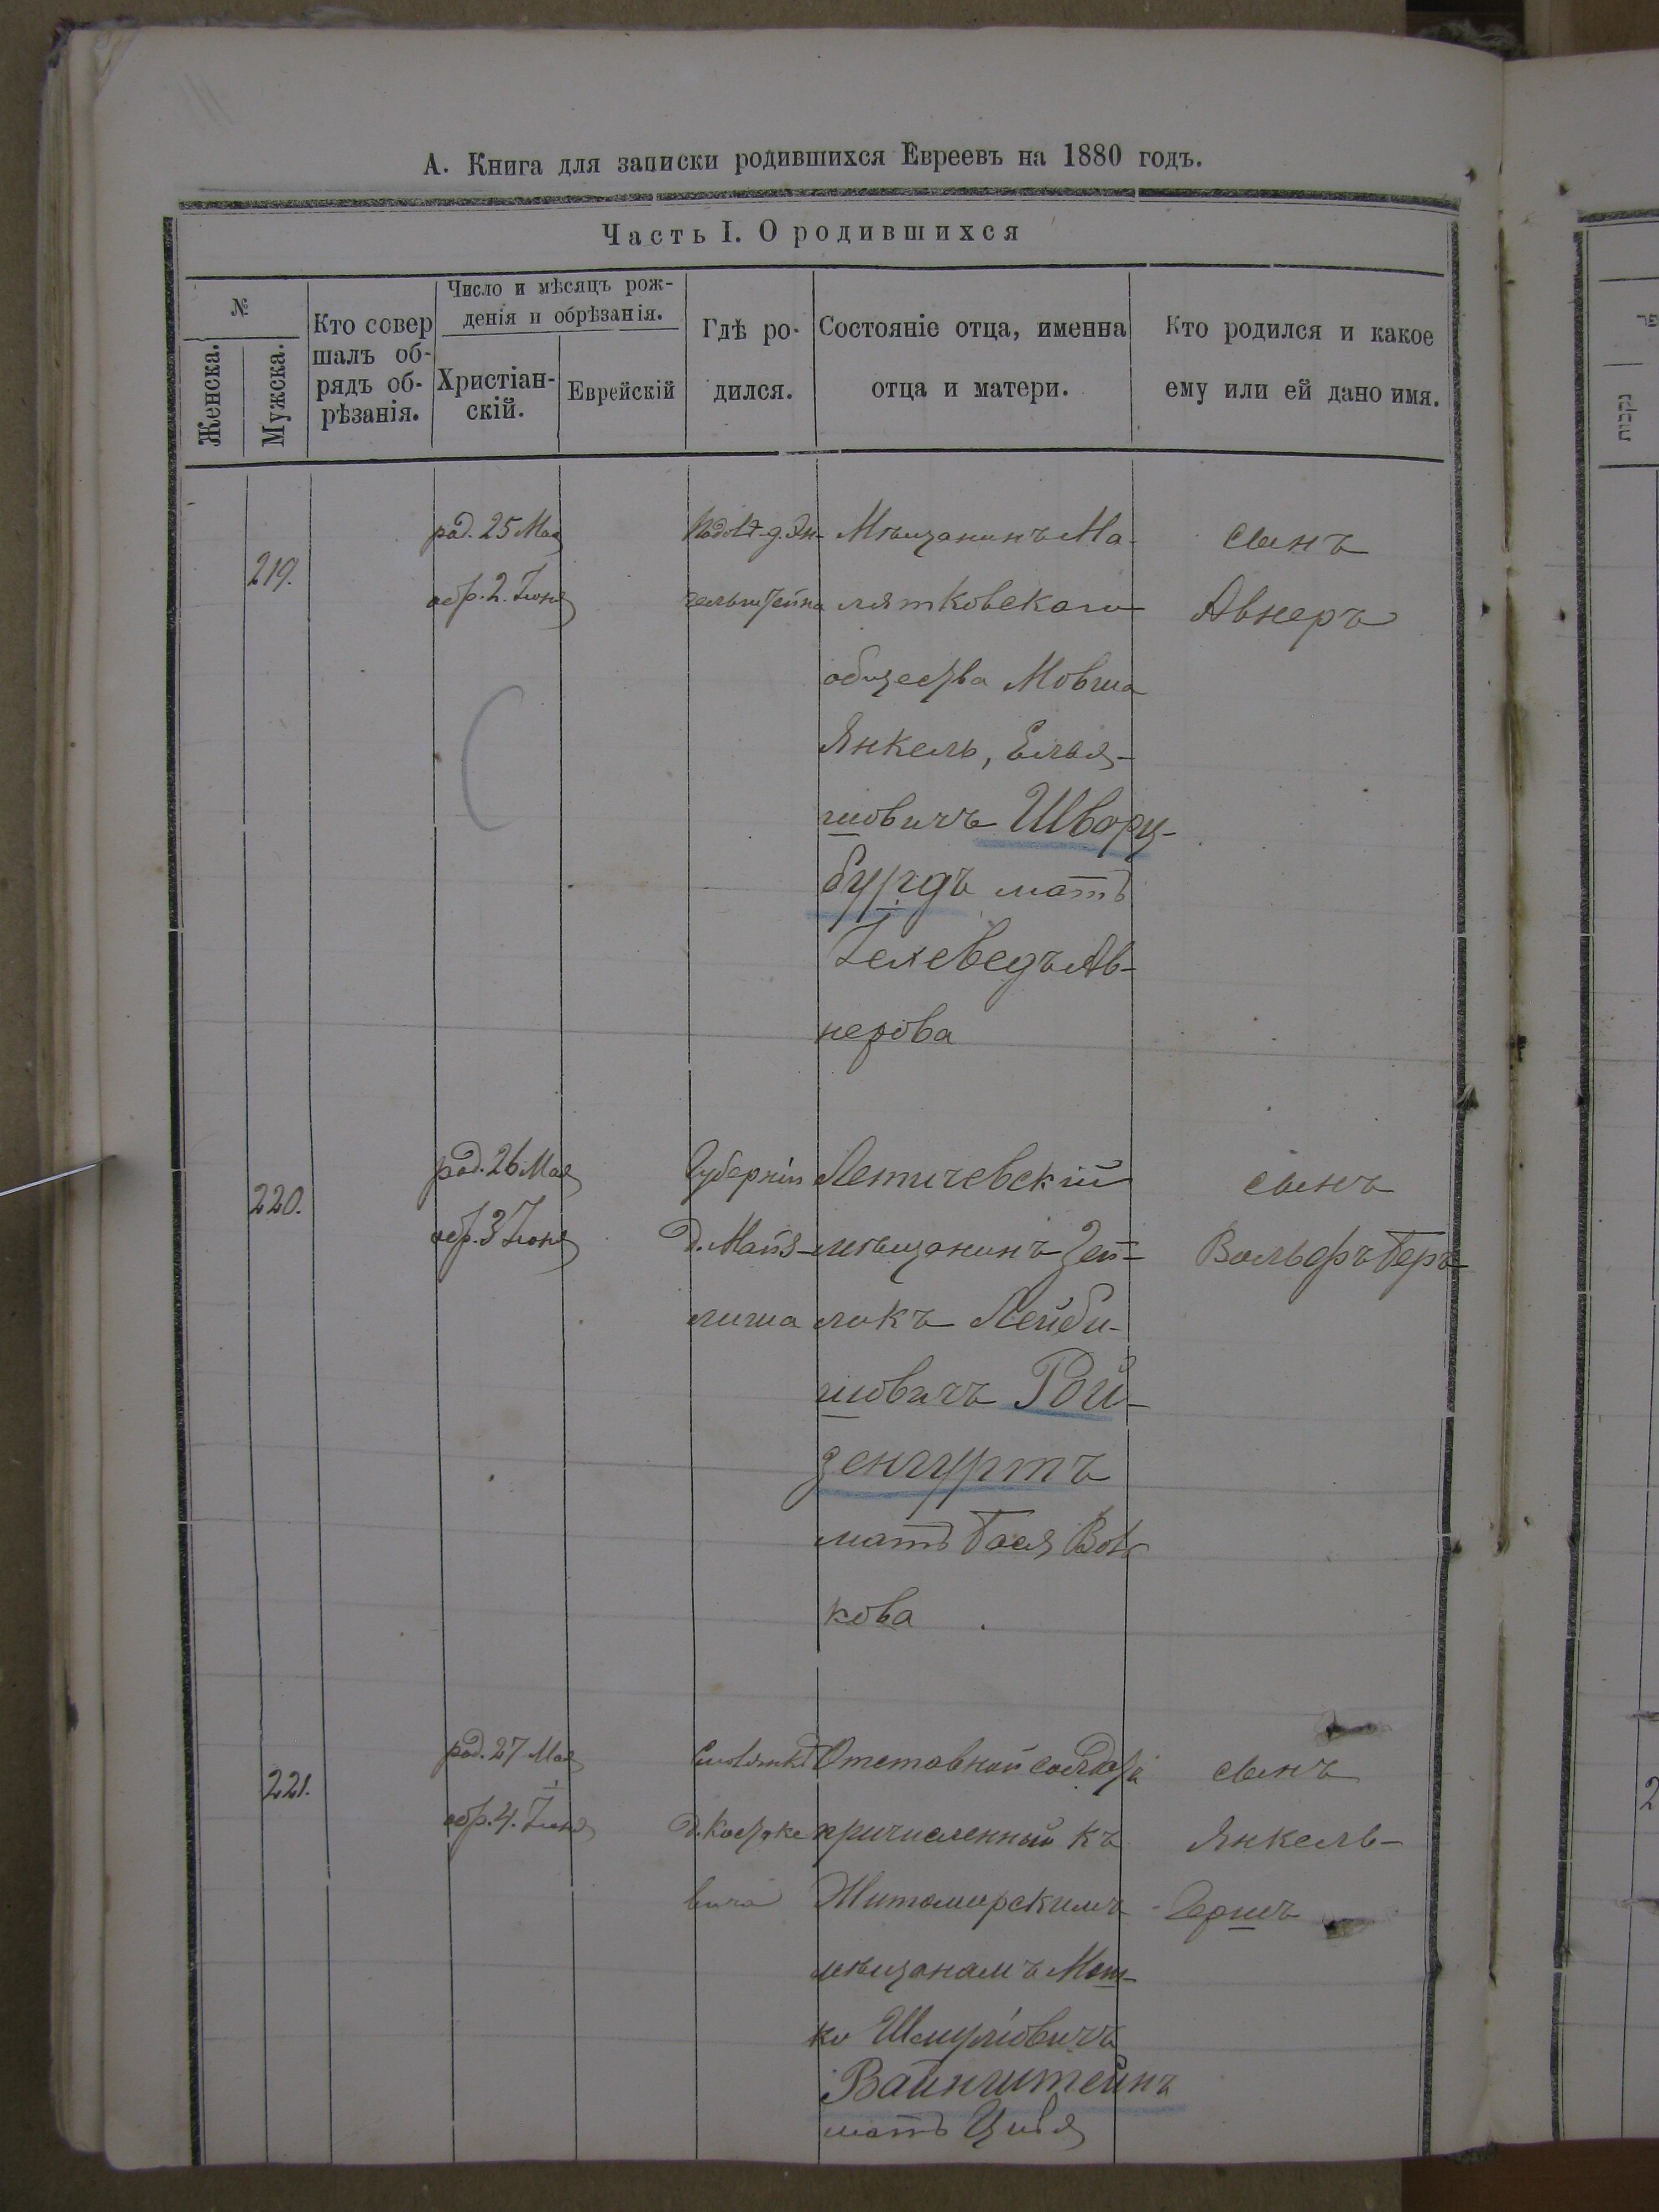 А. Книга для записки родившихся Евреевъ на 1880 годъ.
Часть I. О родившихся
№
Женска.
Мужска.
Кто совер
шалъ об-
рядъ об-
рѣзанія.
Число и мѣсяцъ рож-
денія и обрѣзанія.
Христіан-
скій.
Еврейскій
Гдѣ ро-
дился.
Состояніе отца, именна
отца и матери.
Кто родился и какое
ему или ей дано имя.
219.
род. 25 Мая
обр. 2. Іюня
гельштейна
Мѣщанинъ Ма-
лятковскаго
общества Мовша
Янкель, Елья-
шовичъ Шварц-
бурдъ мать
Іехеведъ Ав-
нерова
сынъ
Авнеръ
220.
род. 26 Мая
обр. 3 Іюня
Губерніи
д. Майз-
лиша
Летичевскій
мѣщанинъ Зей-
ликъ Лейби-
шовичъ Рой-
зенгуртъ
мать Бася Вол
кова
сынъ
Вольфъ Беръ
221.
род. 27 Мая
обр. 4. Іюня
д. Костаке
вича
Отставной солдатъ
причисленный къ
Житомирскимъ
мѣщанамъ Мош-
ко Шмуліовичъ
Вайнштейнъ
мать Цивя
сынъ
Янкель-
Гершъ
נקבות
2